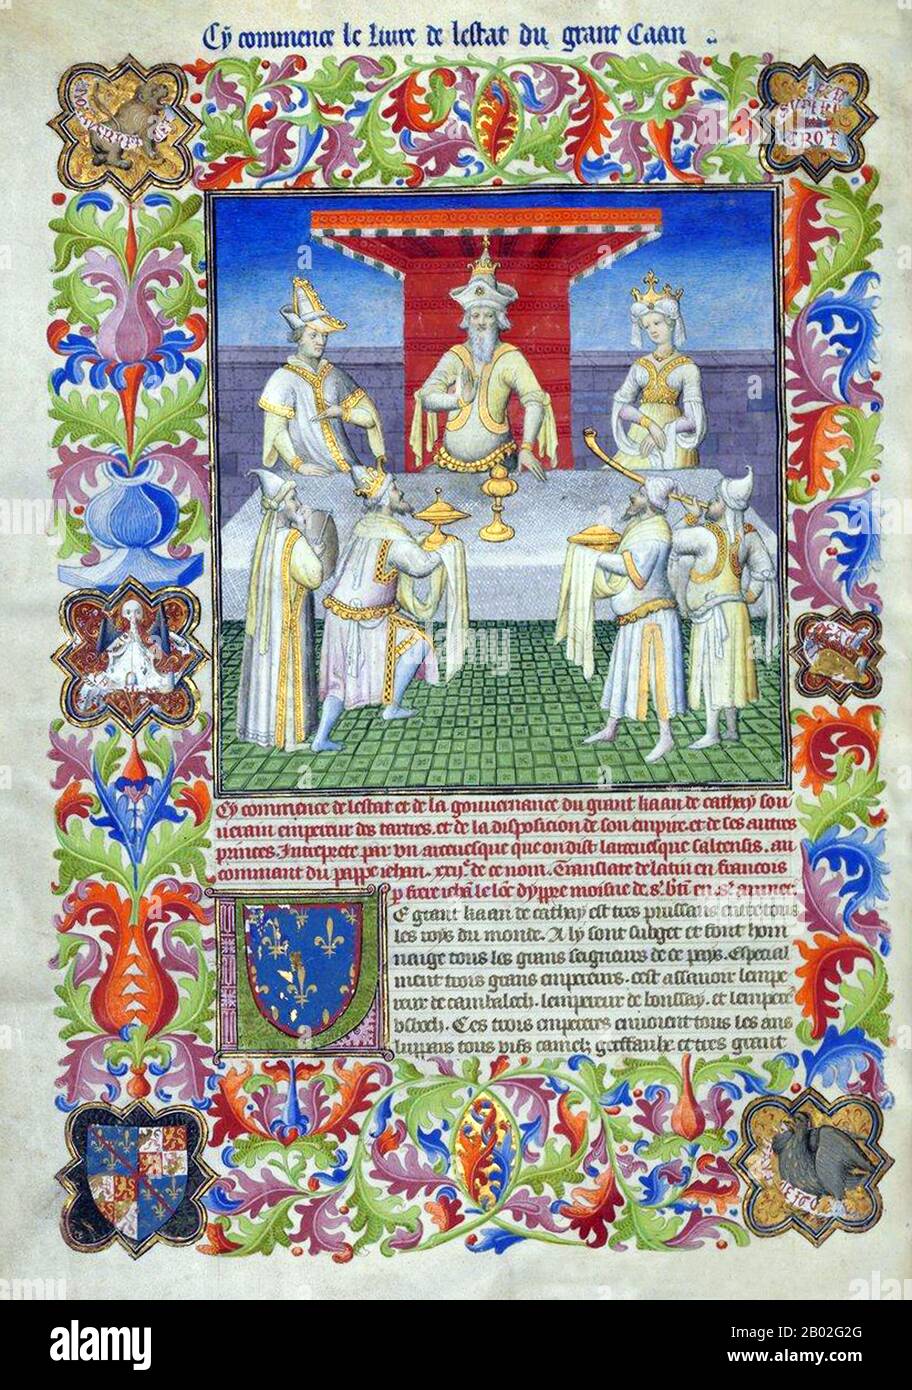 Cy commence le liure de lestat du grant Caan
Cy commence de lestat et de la gouuernance du grant kaan de cathay sou
uerain empereur des tartres. et de la disposicion de son empire. et de ses autres
princes. Interprete par vn arceuesque que on dist larceuesque saltensis. au
command du pappe iehan .xxije. de ce nom. Translate de latin en francois
p frere iehan le lonc dyppre moisne de st btin en st aumer.
E grant kaan de cathay est tres puissans entre tous
les roys du monde. A ly sont subget et font hom
mage tous les grans seigneurs de ce pays. Especial
ment trois grans empereurs. cest assauoir lempe
reur de cambalech. lempereur de boussay. et lempere
vsbech. Ces trois empereurs enuoient tous les ans
luppars tous vifs camelz gerffaulx et tres grant
alamy
Image ID: B02G2G
www.alamy.com